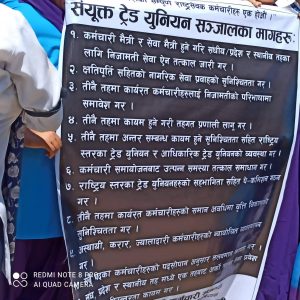 संयुक्त ट्रेड युनियन सञ्जालका मागहरू:
१. कर्मचारी मैत्री र सेवा मैत्री हुने गरि संघीय/प्रदेश र स्थानीय तहका
लागि निजामती सेवा ऐन तत्काल जारी गर ।
२. क्षतिपूर्ति सहितको नागरिक सेवा प्रवाहको सुनिश्चितता गर ।
३. तीनै तहमा कार्यरत कर्मचारीहरुलाई निजामतीको परिभाषामा
समावेश गर ।
४. तीनै तहमा कायम हुने गरी तहगत प्रणाली लागु गर ।
५. तीनै तहमा अन्तर सम्बन्ध कायम हुने सुनिश्चितता सहित राष्ट्रिय
स्तरका ट्रेड युनियन र आधिकारिक ट्रेड युनियनको व्यवस्था गर ।
६. कर्मचारी समायोजनबाट उत्पन्न समस्या तत्काल समाधान गर ।
७. राष्ट्रिय स्तरका ट्रेड युनियनहरुको सहभागिता सहित
गर ।
८. तीनै तहमा कार्यरत कर्मचारीहरुको समान अवधिमा वृत्ति विकासको
सुनिश्चितता गर ।
९. अस्थायी, करार, ज्यालादारी कर्मचारीहरुको
गर ।
कर्मचारीहरुको
प्रदेश र स्थानीय तह
कायम गर ।
REDMI NOTE 8 PRO
AI QUAD CAMERA